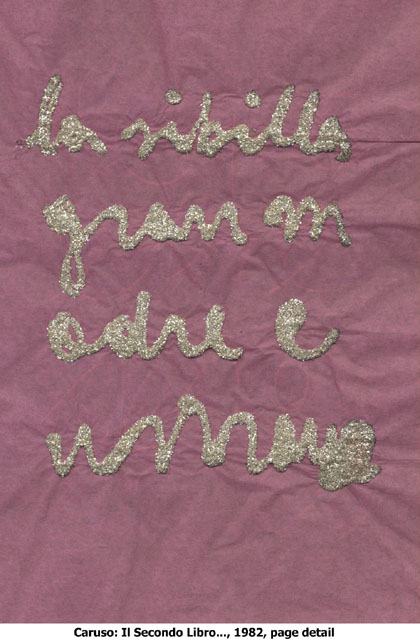 la sibilla
gran m
adre e
Caruso: Il Secondo Libro..., 1982, page detail